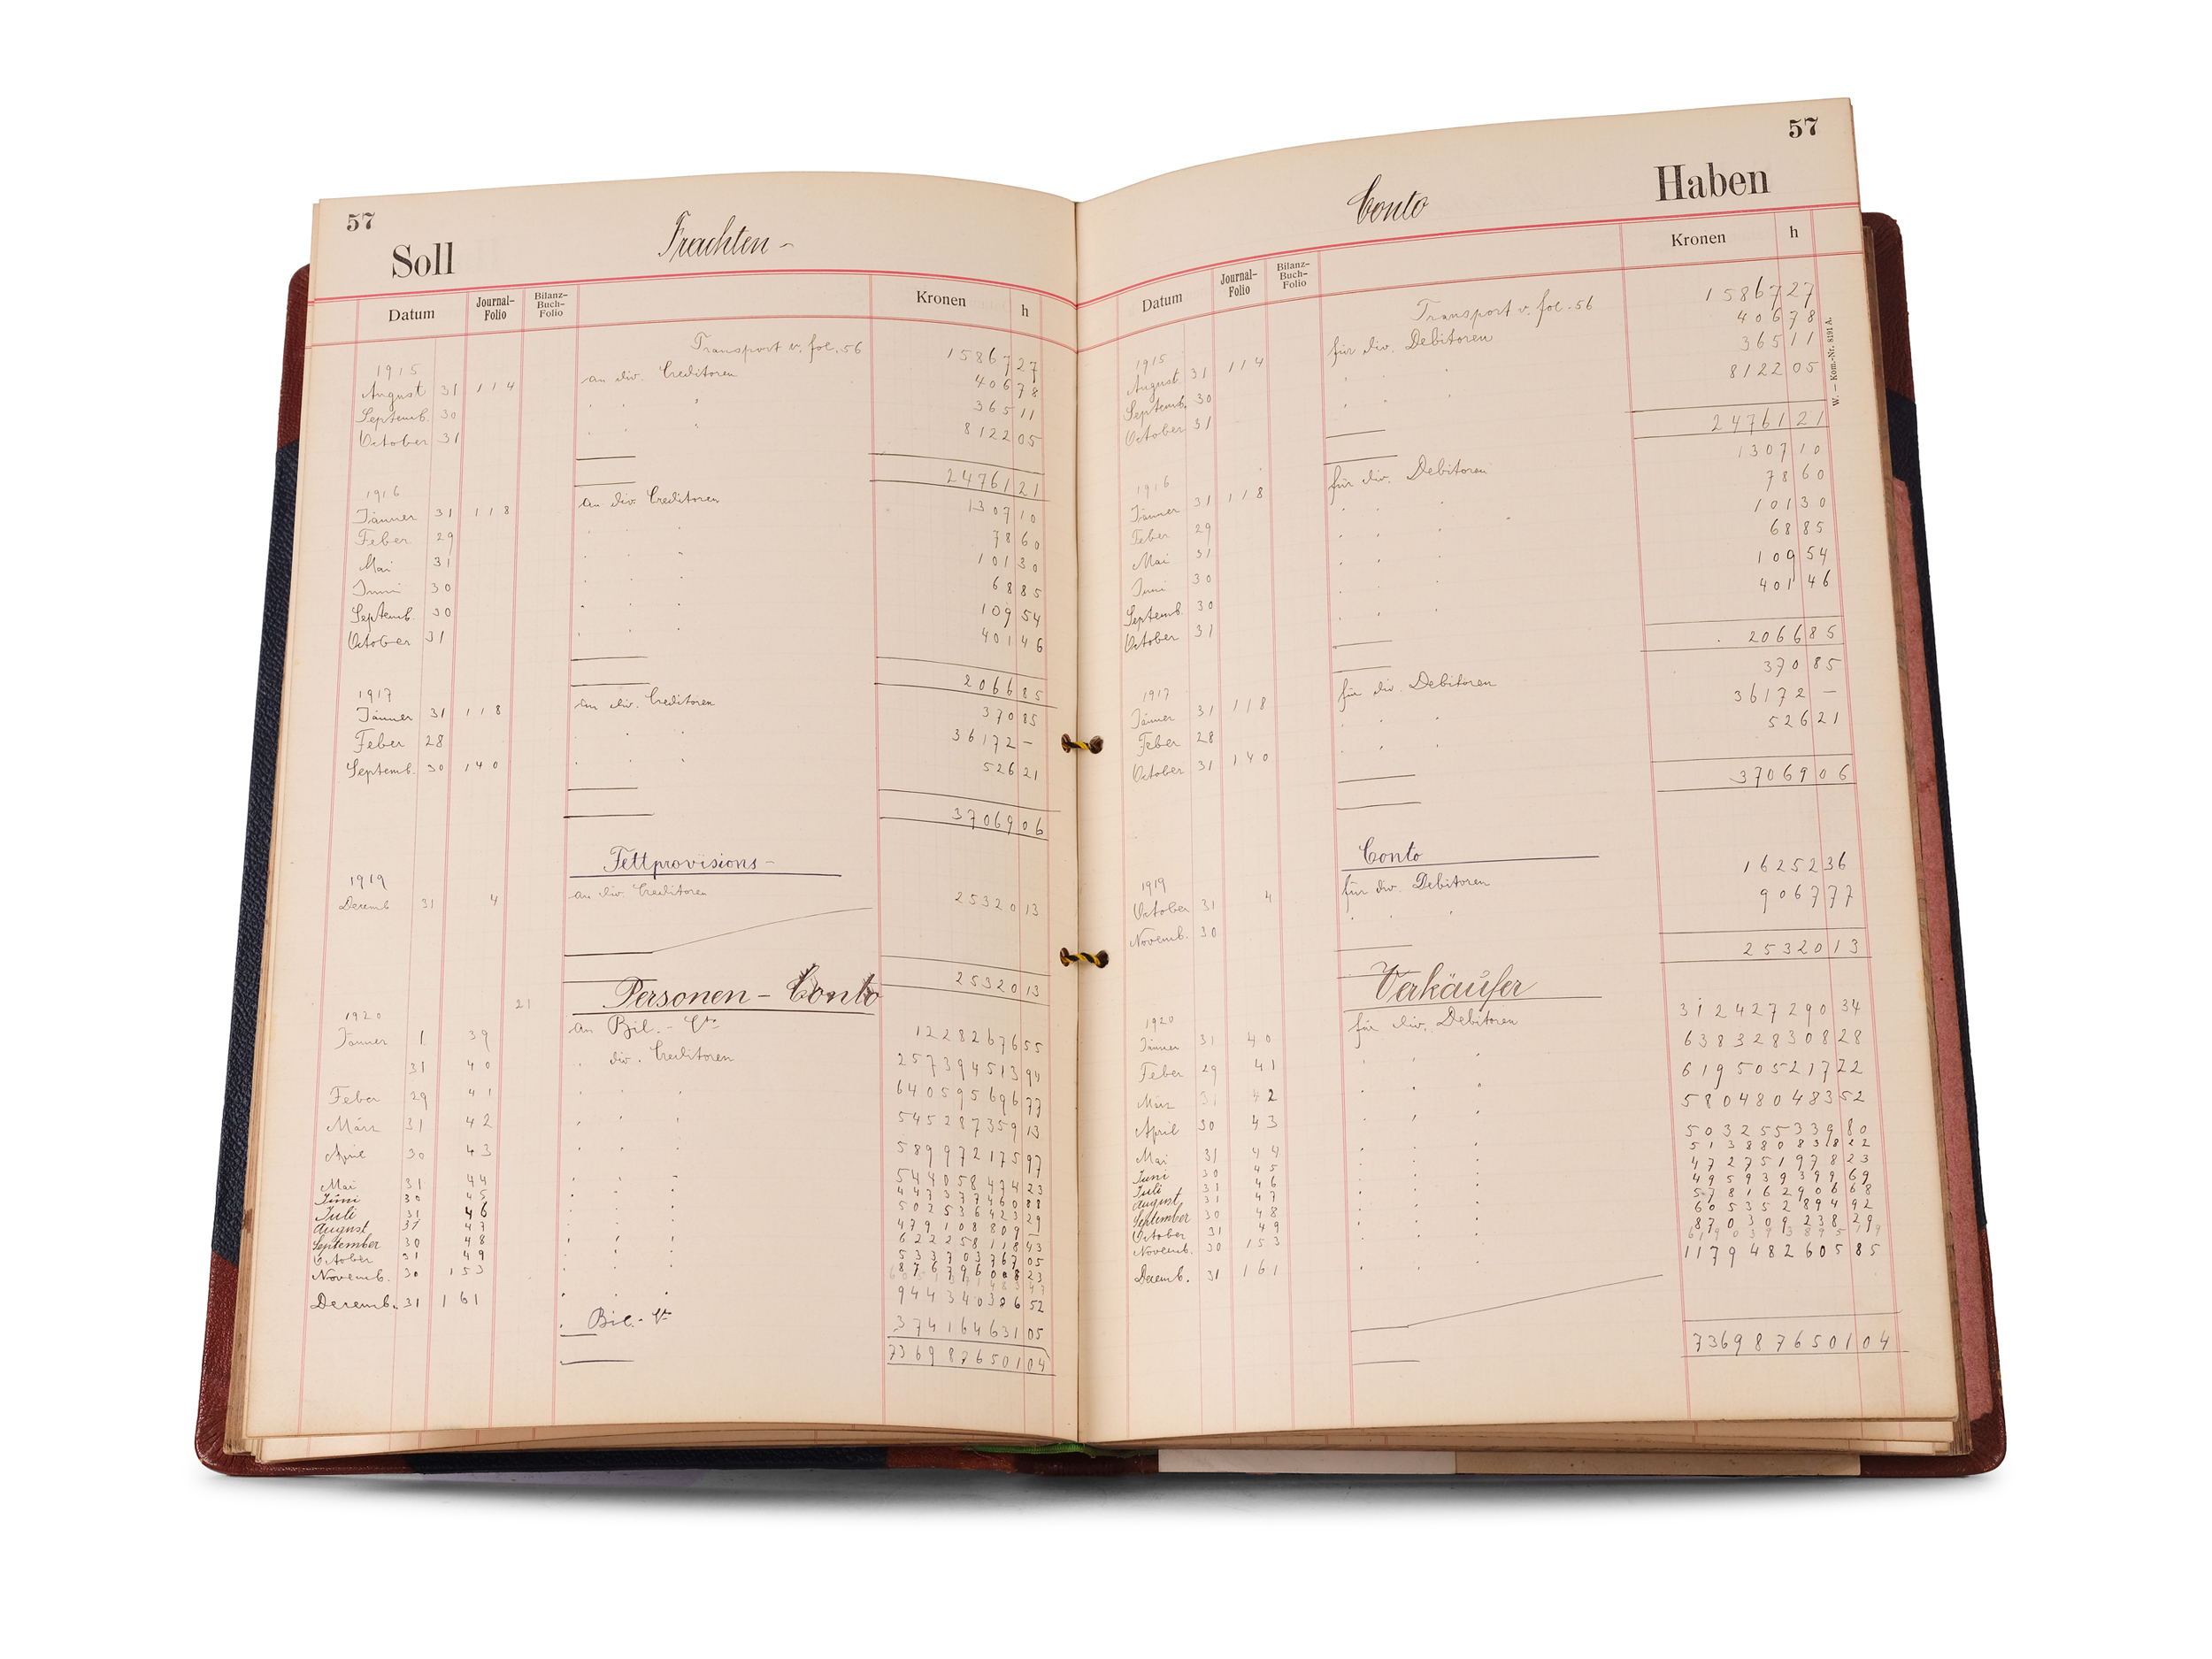 57
Soll
Frachten-
Datum Journal-Folio Bilanz-Buch-Folio Kronen h
Transport v. fol. 56 15867 27
1915
August 31 114 an div. Creditoren 406 78
Septemb. 30 " " " 365 11
October 31 " " 8122 05
24761 21
1916
Jänner 31 118 an div. Creditoren 1307 10
Feber 29 " " 78 60
Mai 31 " " " 101 30
Juni 30 " " " 68 85
Septemb. 30 " " " 109 54
October 31 " " " 401 46
2066 85
1917
Jänner 31 118 an div. Creditoren 370 85
Feber 28 " " 36172 –
Septemb. 30 140 " " " 526 21
37069 06
Fettprovisions-
1919
Decemb 31 4 an div. Creditoren 25320 13
25320 13
Personen - Conto
21
1920
Jänner 1 39 an Bil. - Cto 12282676 55
31 40 " div. Creditoren 257394513 94
Feber 29 41 " " " 640595696 77
März 31 42 " " " 545287359 13
April 30 43 " " " 589972175 97
Mai 31 44 " " " 544058474 23
Juni 30 45 " " " 447377460 88
Juli 31 46 " " " 502536423 29
August 31 47 " " " 479108809 –
September 30 48 " " " 622258118 43
October 31 49 " " " 533703767 05
Novemb. 30 153 " " " 876796008 23
Decemb. 31 161 " " " 944340306 52
" Bil. - Cto 374164631 05
7369876501 04
57
Conto
Haben
Datum Journal-Folio Bilanz-Buch-Folio Kronen h
Transport v. fol. 56 15867 27
1915
August 31 114 für div. Debitoren 406 78
Septemb. 30 " " " 365 11
October 31 " " " 8122 05
24761 21
1916
Jänner 31 118 für div. Debitoren 1307 10
Feber 29 " " 78 60
Mai 31 " " " 101 30
Juni 30 " " " 68 85
Septemb. 30 " " " 109 54
October 31 " " " 401 46
2066 85
1917
Jänner 31 118 für div. Debitoren 370 85
Feber 28 " " 36172 –
October 31 140 " " 526 21
37069 06
Conto
1919
October 31 4 für div. Debitoren 16252 36
Novemb. 30 " " 9067 77
25320 13
Verkäufer
1920
Jänner 31 40 für div. Debitoren 312427290 34
Feber 29 41 " " " 638328308 28
März 31 42 " " " 619505217 22
April 30 43 " " " 580480483 52
Mai 31 44 " " " 503255339 80
Juni 30 45 " " " 513880838 22
Juli 31 46 " " " 472751978 23
August 31 47 " " " 495939399 69
September 30 48 " " " 578162906 68
October 31 49 " " " 605352894 92
Novemb. 30 153 " " " 870309238 29
Decemb. 31 161 " " " 1179482605 85
7369876501 04
W. — Kom.-Nr. 8191 A.